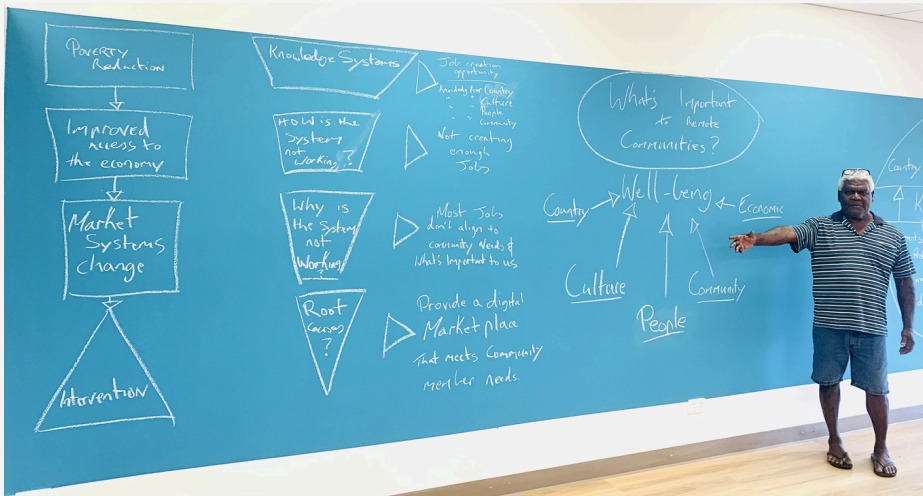 Poverty
Reduction
Improved
Access to
the economy
Market
Systems
Change
Intervention
Knowledge Systems
How is the
System
not
Working?
Why is
the System
not
Working
?
Root
Causes
?
Job creation
opportunity
Knowledge for Country
" " Culture
" " People
" " Community
Not creating
enough
Jobs
Most Jobs
don't align to
community needs &
what's important to us
Provide a digital
Market place
That meets Community
member needs.
What's Important
to Remote
Communities?
Well-being
Country
Economic
Culture
Community
People
Country